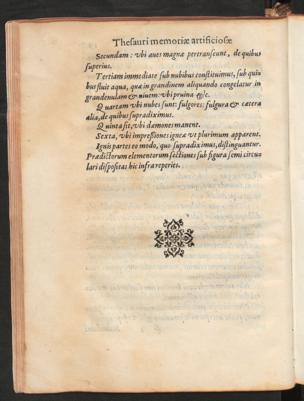 Thesauri memoriæ artificiosæ
Secundam: vbi aues magnæ pertranseunt, de quibus
superius.
Tertiam immediate sub nubibus constituimus, sub qui
bus fluit aqua, quæ in grandinem aliquando congelatur in
grandenulam & niuem: vbi pruina &c.
Quartam vbi nubes sunt: fulgores: fulgura & cætera
alia, de quibus supradiximus.
Quinta sit, vbi dæmones manent.
Sexta, vbi impreßiones igneæ vt plurimum apparent.
Ignis partes eo modo, quo supradiximus, distinguantur.
Prædictorum elementorum sectiones sub figura semi circu
lari dispositas hic infra reperies.